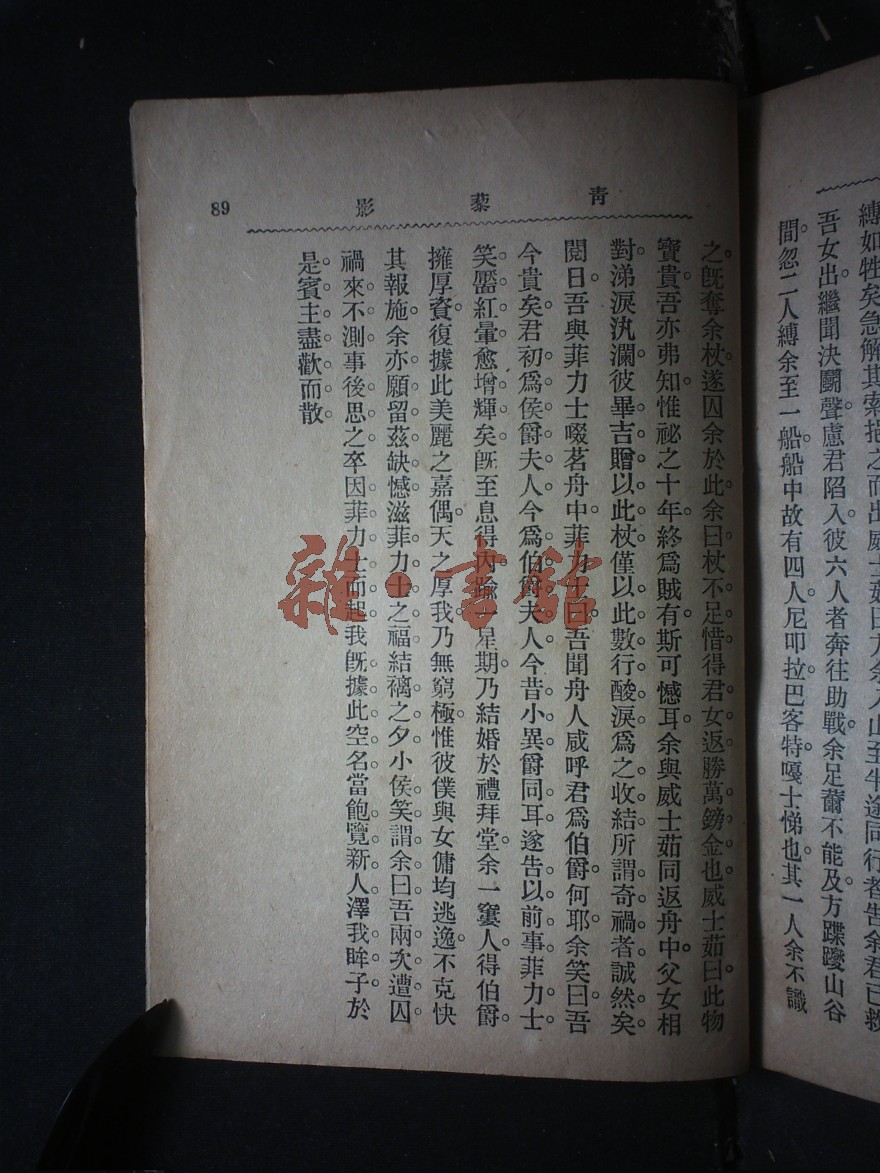 縛如牲矣急解其索挹之而出威士茹曰方余入山至半途同行者告余君已救
吾女出。繼聞決鬭聲。慮君陷入。彼六人者奔往助戰。余足薾不能及。方蹀躞山谷
間。忽二人縛余至一船。船中故有四人。尼叩拉巴客特嘎士悌也。其一人余不識
青藜影
89
之。旣奪余杖。遂囚余於此。余曰。杖不足惜。得君女返。勝萬鎊金也。威士茹曰。此物
寶貴。吾亦弗知。惟祕之十年。終爲賊有。斯可憾耳。余與威士茹同返舟中。父女相
對。涕淚汍瀾。彼畢吉贈以此杖。僅以此數行酸淚爲之收結。所謂奇禍者誠然矣。
閱日。吾與菲力士啜茗舟中。菲力士曰。吾聞舟人咸呼君爲伯爵。何耶。余笑曰。吾
今貴矣。君初爲侯爵夫人。今爲伯爵夫人。今昔小異。爵同耳。遂告以前事。菲力士
笑靨紅暈。愈增輝矣。旣至息得內。踰一星期。乃結婚於禮拜堂。余一窶人。得伯爵。
擁厚賚。復據此美麗之嘉偶。天之厚我。乃無窮極。惟彼僕與女傭均逃逸。不克快
其報施。余亦願留茲缺憾。滋菲力士之福。結褵之夕。小侯笑謂余曰。吾兩次遭囚。
禍來不測。事後思之。卒因菲力士而起。我旣據此空名。當飽覽新人。澤我眸子。於
是賓主盡歡而散。
雜·書館